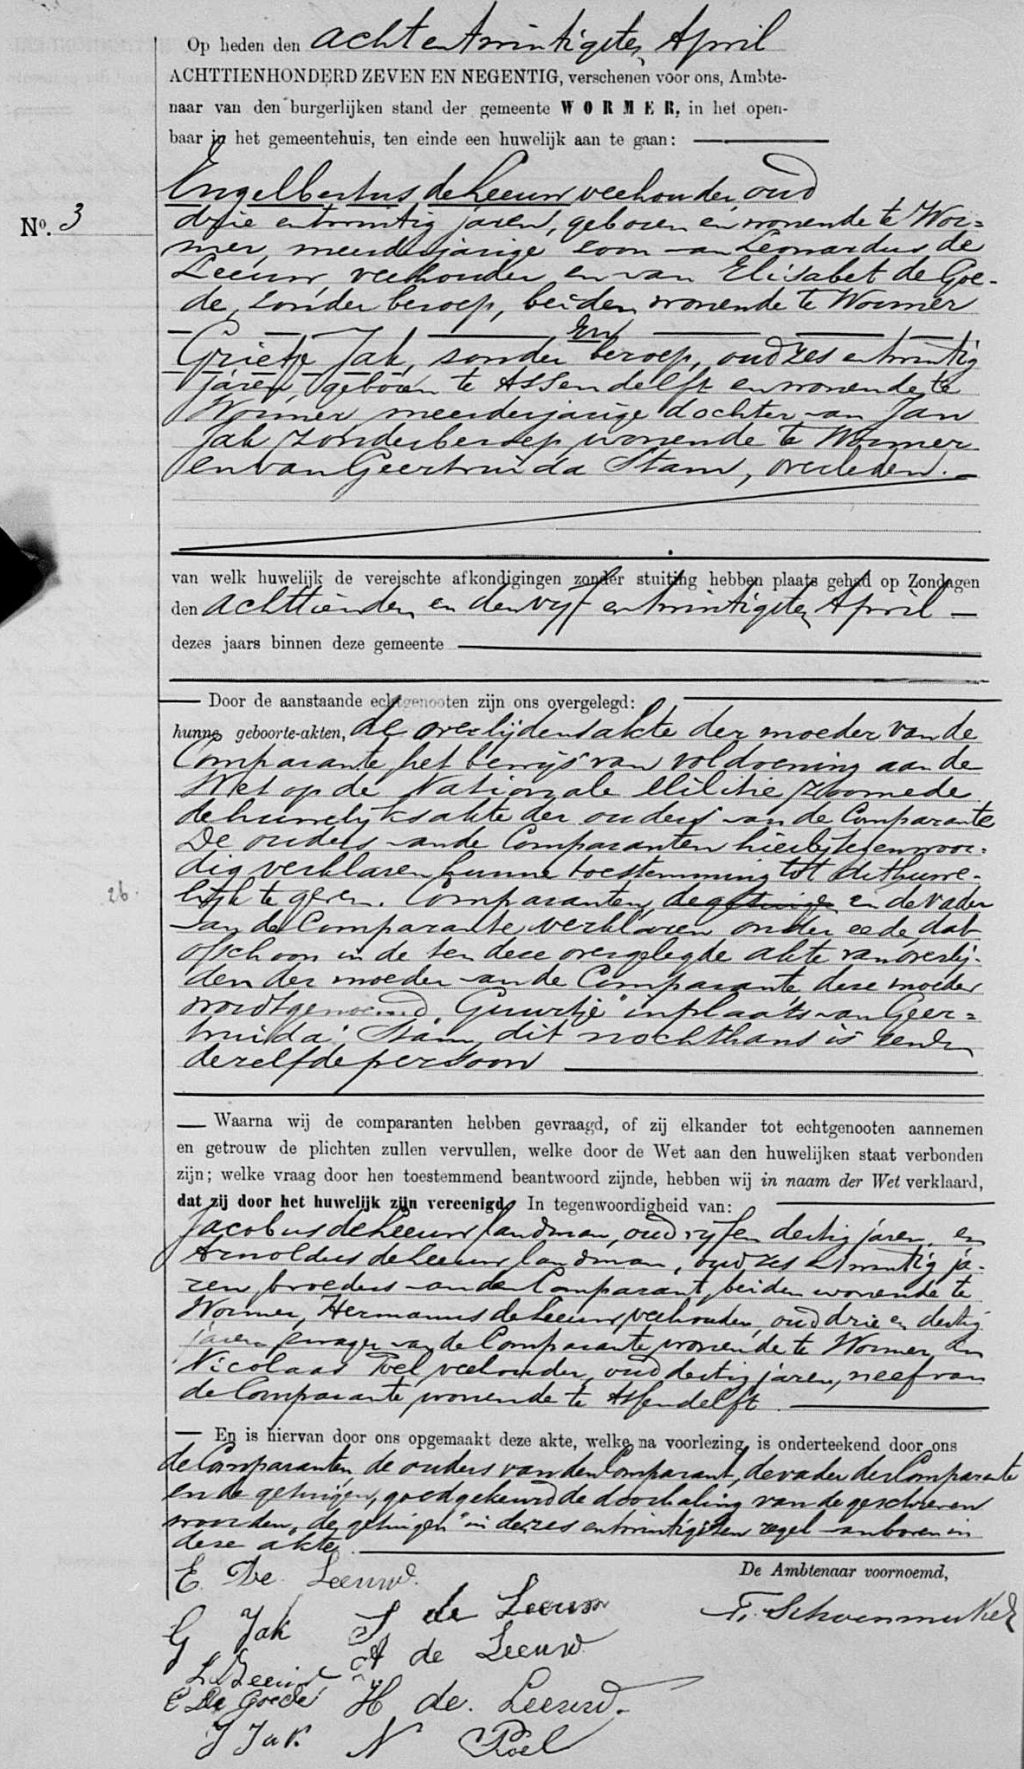 Op heden den achtentwintigsten April
ACHTTIENHONDERD ZEVEN EN NEGENTIG, verschenen voor ons, Ambte-
naar van den burgerlijken stand der gemeente WORMER, in het open-
baar in het gemeentehuis, ten einde een huwelijk aan te gaan:
No. 3
Engelbertus de Leeuw veehouder oud
drie entwintig jaren, geboren en wonende te Wor=
mer, meerderjarige zoon van Leonardus de
Leeuw, veehouder en van Elisabet de Goe-
de, zonder beroep, beiden wonende te Wormer
En
Grietje Jak, zonder beroep, oud zes entwintig
jaren, geboren te Assendelft en wonende te
Wormer meerderjarige dochter van Jan
Jak zonder beroep wonende te Wormer
en van Geertruida Stam, overleden.
van welk huwelijk de vereischte afkondigingen zonder stuiting hebben plaats gehad op Zondagen
den achttienden en den vijf entwintigsten April
dezes jaars binnen deze gemeente
Door de aanstaande echtgenooten zijn ons overgelegd:
hunne geboorte-akten, de overlijdensakte der moeder van de
Comparante, het bewijs van voldoening aan de
Wet op de Nationale Militie zoomede
de huwelijksakte der ouders van de Comparante
De ouders van de Comparanten hierbij tegenwoor=
dig verklaren hunne toestemming tot dit huwe-
26.
lijk te geven. Comparanten, de getuigen en de vader
van de Comparante verklaren onder eede, dat
ofschoon in de ten deze overgelegde akte van overlij-
den der moeder van de Comparante deze moeder
wordt genoemd "Guurtje" in plaats van "Geer=
truida" Stam, dit nochthans is een en
dezelfde persoon
Waarna wij de comparanten hebben gevraagd, of zij elkander tot echtgenooten aannemen
en getrouw de plichten zullen vervullen, welke door de Wet aan den huwelijken staat verbonden
zijn; welke vraag door hen toestemmend beantwoord zijnde, hebben wij in naam der Wet verklaard,
dat zij door het huwelijk zijn vereenigd. In tegenwoordigheid van:
Jacobus de Leeuw landman, oud vijf en dertig jaren, en
Arnoldus de Leeuw landman, oud zes entwintig ja-
ren, broeders van den Comparant, beiden wonende te
Wormer, Hermanus de Leeuw, veehouder, oud drie en dertig
jaren, zwager van de Comparante, wonende te Wormer en
Nicolaas Poel, veehouder, oud dertig jaren, neef van
de Comparante, wonende te Assendelft.
En is hiervan door ons opgemaakt deze akte, welke, na voorlezing, is onderteekend door ons
de Comparanten, de ouders van den Comparant, de vader der Comparante
en de getuigen, goedgekeurd de doorhaling van de geschreven
woorden "de getuigen" in den zes entwintigsten regel van boven in
deze akte.
E. De Leeuw.
De Ambtenaar voornoemd,
G Jak
J de Leeuw
F. Schoenmaker
A de Leeuw
L. d Leeuw
E De Goede
H de. Leeuw.
J Jak.
N Poel